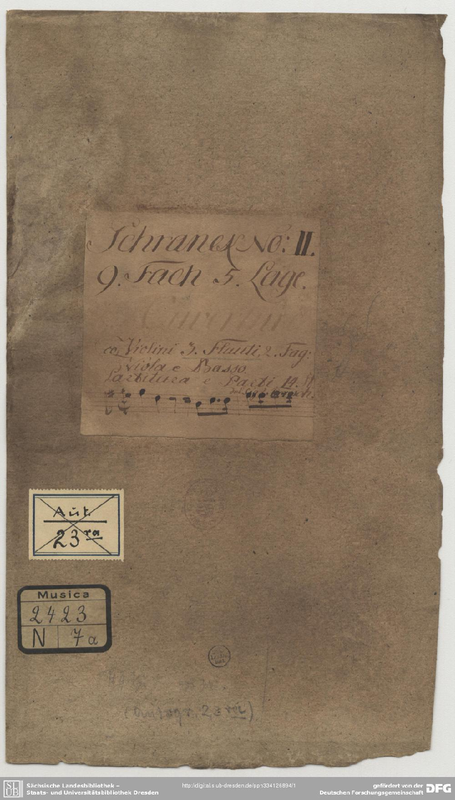 Schranck No: II.
9. Fach 5. Lage.
Violini 2. Flauti 2. Fag:
Viola e Basso.
Partitura e Parti
Aut.
23ra
Musica
2423
N 7a
(Autogr. 23ra)
Sächsische Landesbibliothek –
Staats- und Universitätsbibliothek Dresden
gefördert von der
Deutschen Forschungsgemeinschaft DFG